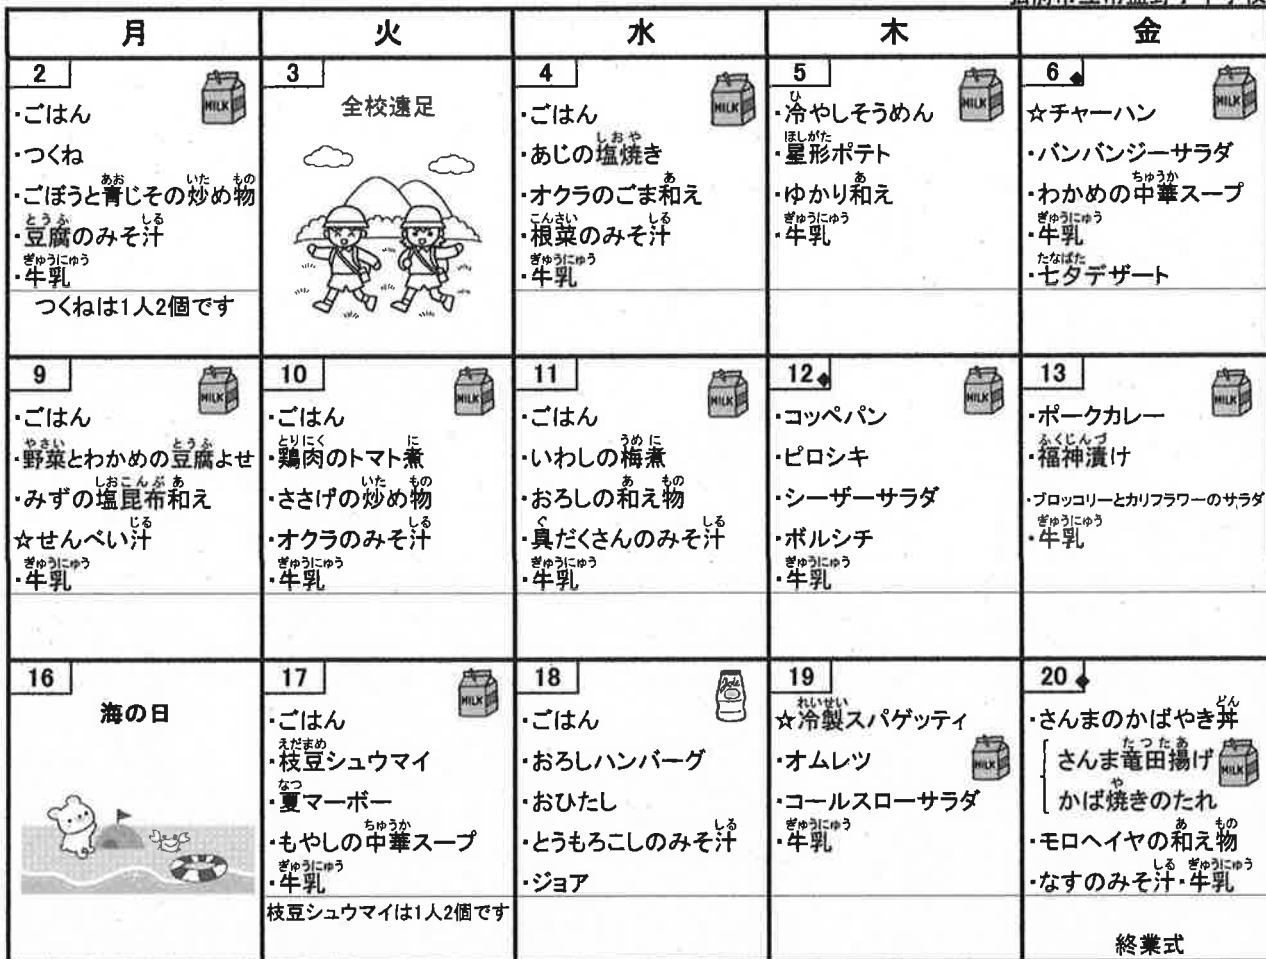 月 火 水 木 金
2
・ごはん
・つくね
・ごぼうと青じその炒め物
・豆腐のみそ汁
・牛乳
つくねは1人2個です
3
全校遠足
4
・ごはん
・あじの塩焼き
・オクラのごま和え
・根菜のみそ汁
・牛乳
5
・冷やしそうめん
・星形ポテト
・ゆかり和え
・牛乳
6◆
☆チャーハン
・バンバンジーサラダ
・わかめの中華スープ
・牛乳
・七夕デザート
9
・ごはん
・野菜とわかめの豆腐よせ
・みずの塩昆布和え
☆せんべい汁
・牛乳
10
・ごはん
・鶏肉のトマト煮
・ささげの炒め物
・オクラのみそ汁
・牛乳
11
・ごはん
・いわしの梅煮
・おろしの和え物
・具だくさんのみそ汁
・牛乳
12◆
・コッペパン
・ピロシキ
・シーザーサラダ
・ボルシチ
・牛乳
13
・ポークカレー
・福神漬け
・ブロッコリーとカリフラワーのサラダ
・牛乳
16
海の日
17
・ごはん
・枝豆シュウマイ
・夏マーボー
・もやしの中華スープ
・牛乳
枝豆シュウマイは1人2個です
18
・ごはん
・おろしハンバーグ
・おひたし
・とうもろこしのみそ汁
・ジョア
19
☆冷製スパゲッティ
・オムレツ
・コールスローサラダ
・牛乳
20◆
・さんまのかばやき丼
さんま竜田揚げ
かば焼きのたれ
・モロヘイヤの和え物
・なすのみそ汁・牛乳
終業式